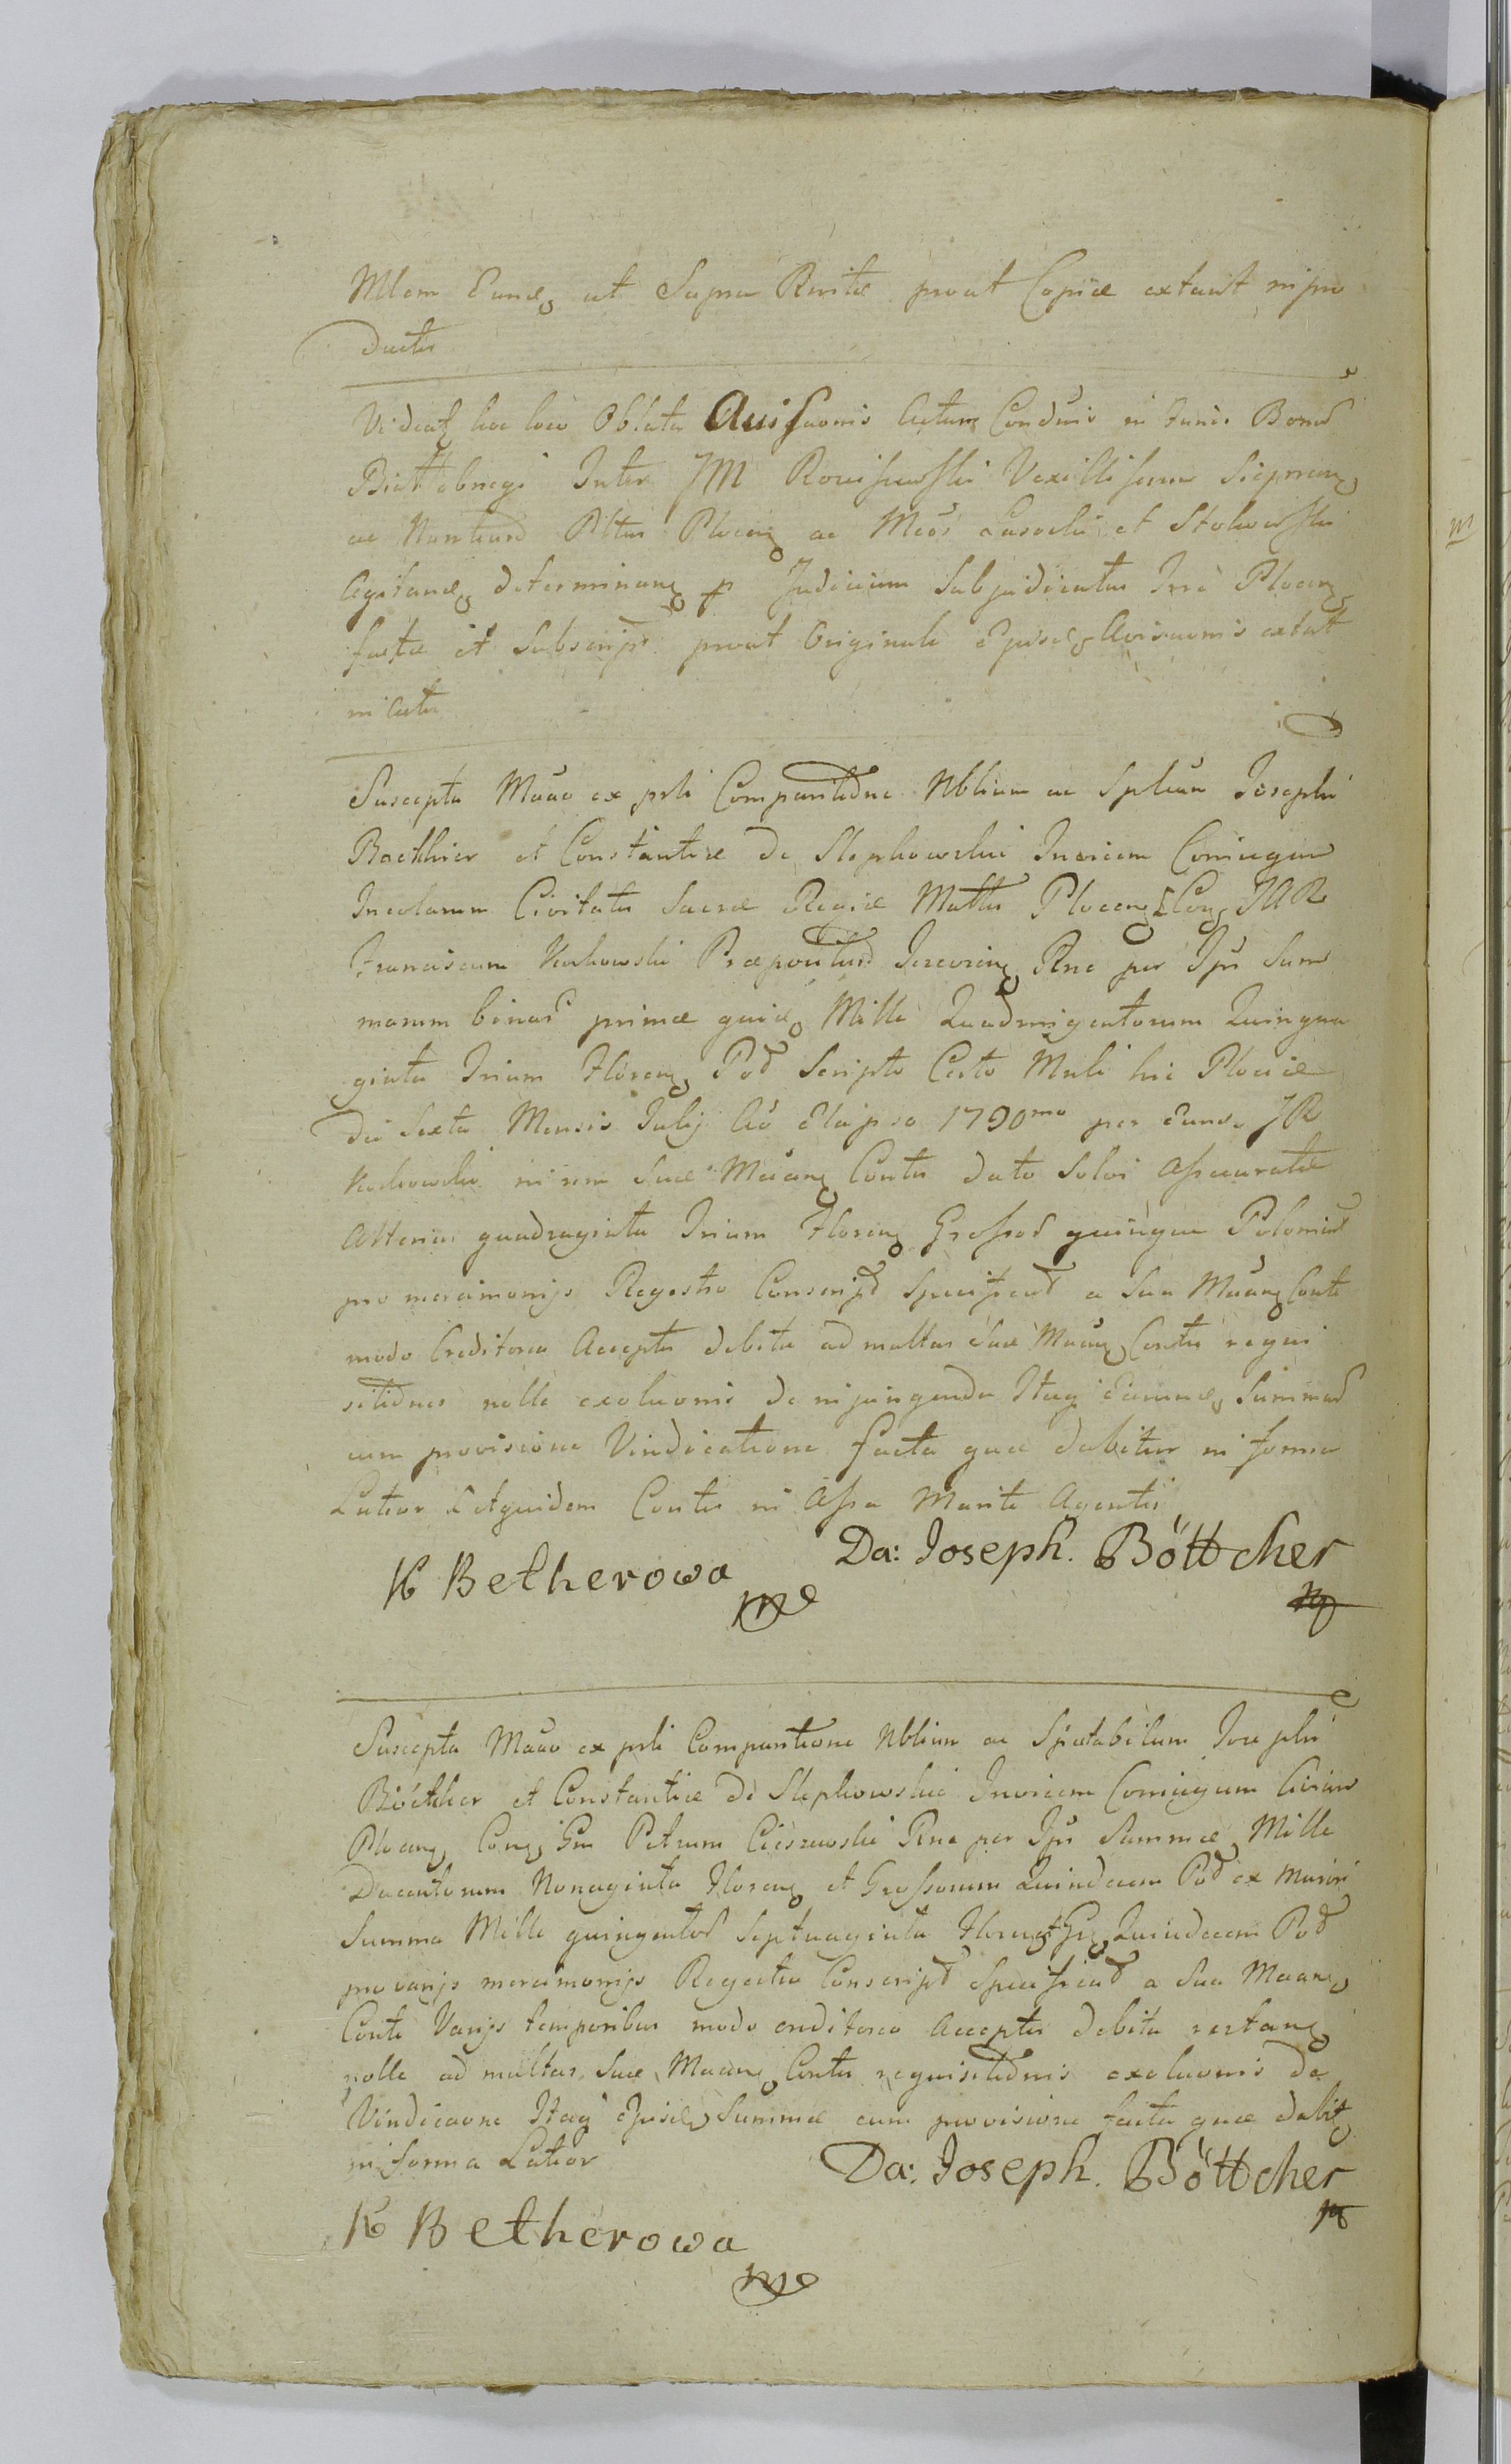 Mltem Eundē ut Supra Rnitæ prout Copiæ extant in pro
ductis
Videatr hoc loco Oblata Avisaonis Actum Condnis in Fundo Bonor
Inter JM Vexilliferum Sieprcen
ac Pltus Plocen ac Mcos Lasocki et Stokowski
Agitand determinand p Judicium Subjudicatus Trrē Plocen
factæ et Subscript prout Originale Ejusd Avisaonis extat
in Actis
Suscepta Manō ex prli Comparitione Nblium ac Splium Josephi
Baethier et Constantiæ de Slepkowskie Invicem Coniugum
Incolarum Civitatis Sacræ Regiæ Mattis Plocen Con JAR
Franciscum Kochowski Præpositum Rne per Ipsi Sum
marum binar primæ quid Mille Quadringentorum Quinqua
ginta Trium Floren Pol Scripto Certo Mnli hic Plociæ
die Sexta Mensis Julij Aō Elapso 1790mo per Eund JR
Kochowski in rem Suæ Maian Contis dato Solvi Assecuratæ
Alterius quadraginta Trium Floren Grossor quinque Polonical
pro mercimonijs Regestro Conscript Specificat a Sua Maian Conte
modo Creditorio Acceptis debitæ ad multas Suæ Maian Contis requi
sitiones nolle exoluonis de injungenda Itaq Earund Summar
cum provisione Vindicatione facta quæ dabitur in forma
Latior Et quidem Contis in Assa Mariti Agentis
K Betherowa mp
Da: Joseph. Böttcher
mp
Suscepta Manō ex prli Comparitione Nblium ac Spectabilium Josephi
Böetkher et Constantiæ de Slepkowskie Invicem Coniugum Civium
Plocen Con Gm Petrum Cieszewski Rne per Ipsi Summæ Mille
Ducentorum Nonaginta Floren et Grossorum Quindecem Pol ex maiori
Summa Mille quingentor Septuaginta Floren et Gr Quindecem Pol
pro varijs mercimonijs Regestro Conscript Specificat a Sua Maian
Conte Varijs temporibus modo creditorio Acceptis debitæ restan
nolle ad multas Suæ Maian Contis requisitiones exoluonis de
Vindicaone Itaq Ejusd Summæ cum provisione facta quæ dabitr
in forma Latior
Da: Joseph. Böttcher
mp
K Betherowa
mp